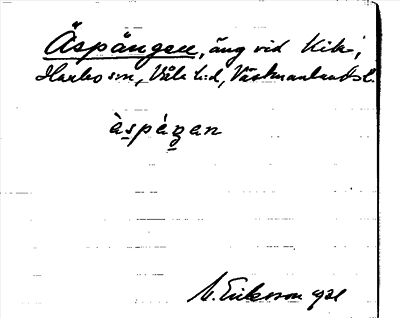 Äspängen, äng vid Kik,
Harbo sn, Våla hd, Västmanlands l.
àspáŋan
M. Eriksson 1931